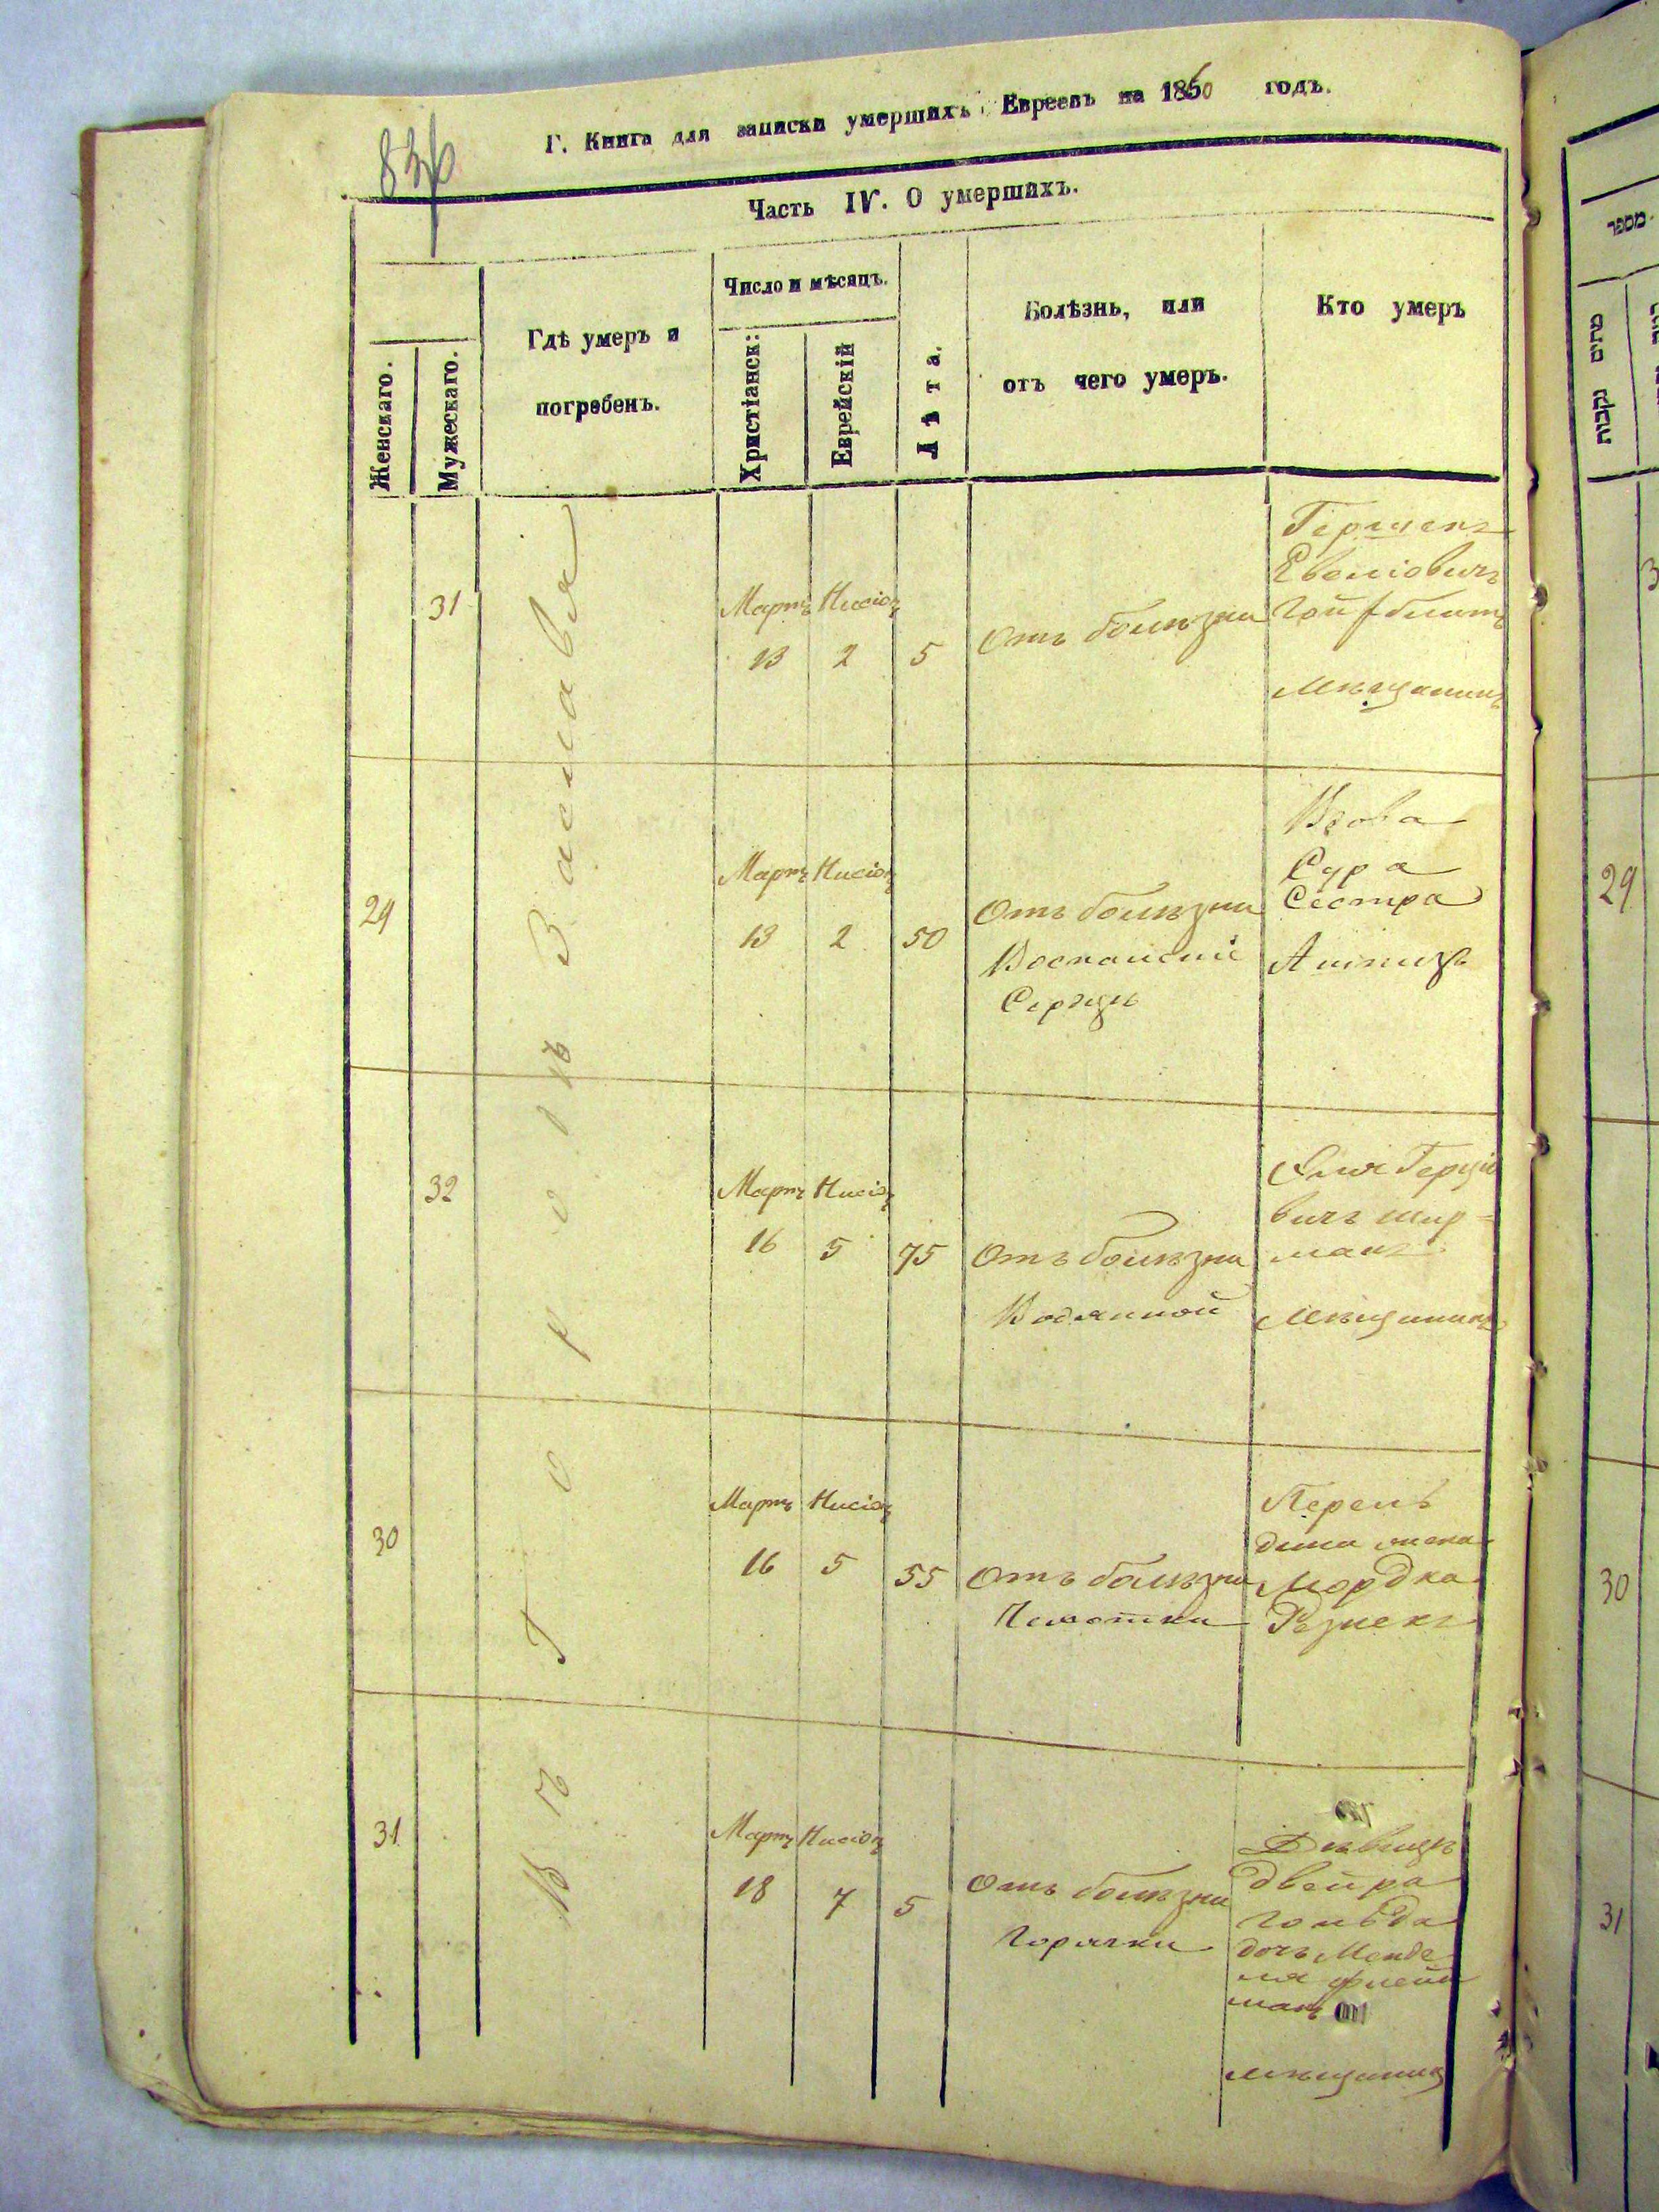 836
Г. Книга для записки умершихъ Евреевъ на 1860 годъ.
Часть IV. О умершихъ.
Женскаго.
Мужескаго.
Гдѣ умеръ и
погребенъ.
Число и мѣсяцъ.
Христіанск:
Еврейскій
Лѣта.
Болѣзнь, или
отъ чего умеръ.
Кто умеръ
Въ Городѣ Заславля
31
Мартъ Нисіонъ
13 2 5
Отъ болѣзни
Гершенъ
мѣщанинъ
29
Мартъ Нисіонъ
13 2 50
Отъ болѣзни
Воспаленіе
Сердцѣ
Вдова
Сура
Сестра
32
Мартъ Нисіонъ
16 5 75
Отъ болѣзни
Водяnной
Еля Герщіо
вичъ шир=
манъ
мѣщанинъ
30
Мартъ Нисіонъ
16 5 55
Отъ болѣзни
Чихотки
Перель
дина жена
Мордка
Резнекъ
31
Мартъ Нисіонъ
18 7 5
Отъ болѣзни
горячки
Дѣвицѣ
Двейра
гольда
дочь Менде
ля флейш
манъ
мѣщанинъ
מספר
מתים נקבות
29
30
31